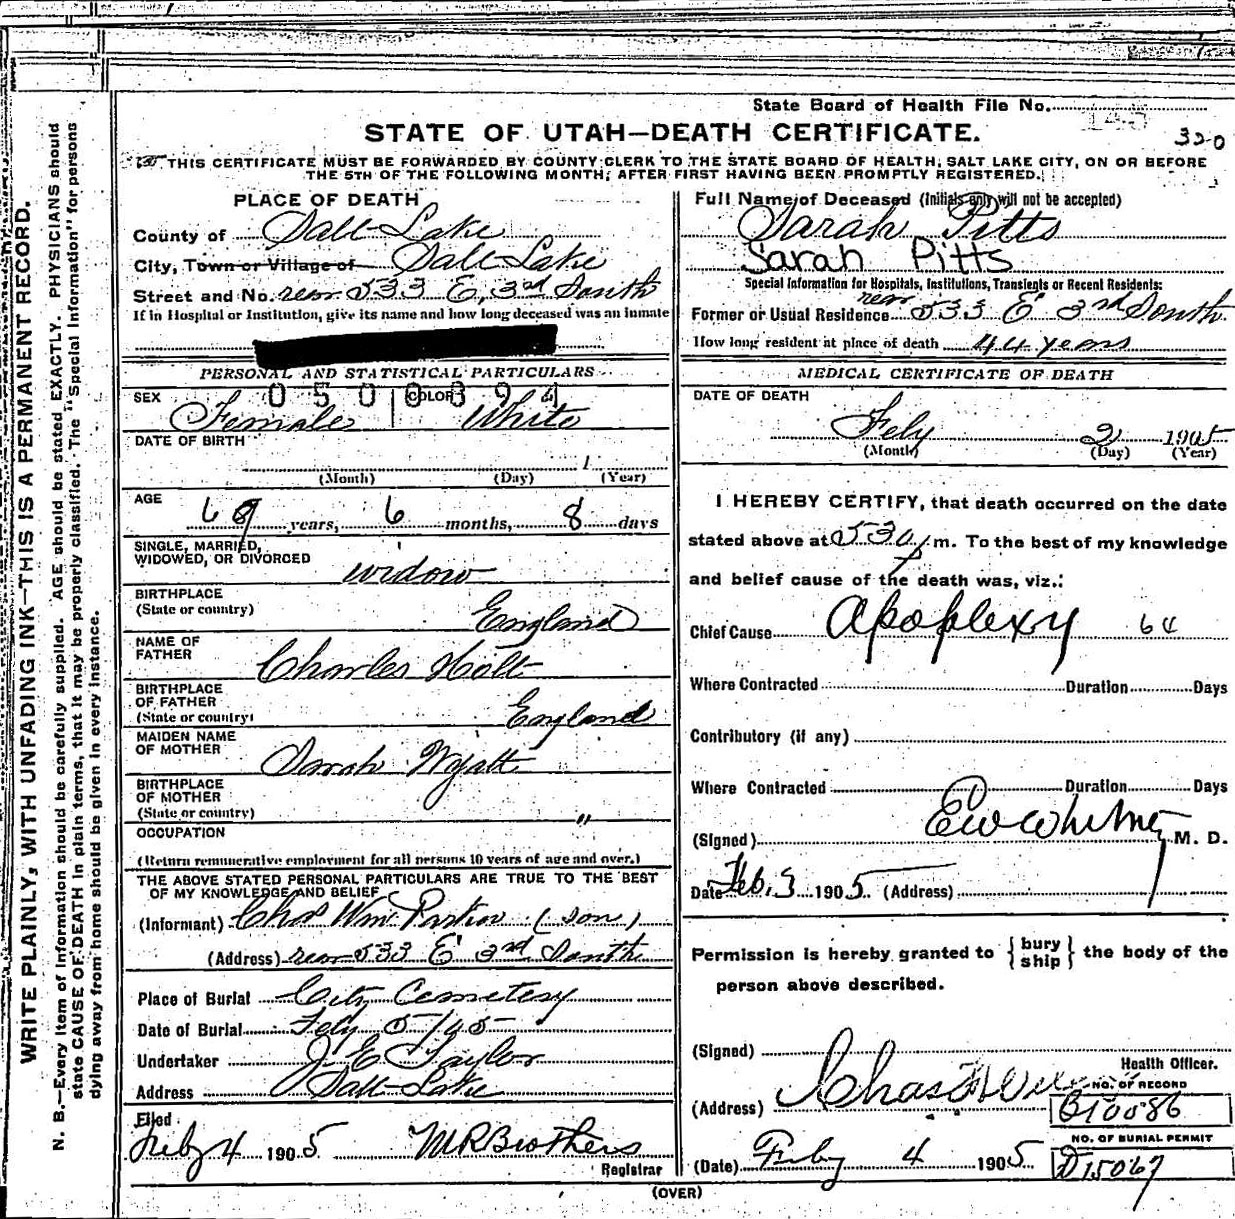 State Board of Health File No.
STATE OF UTAH—DEATH CERTIFICATE.
320
THIS CERTIFICATE MUST BE FORWARDED BY COUNTY CLERK TO THE STATE BOARD OF HEALTH, SALT LAKE CITY, ON OR BEFORE
THE 5TH OF THE FOLLOWING MONTH, AFTER FIRST HAVING BEEN PROMPTLY REGISTERED.
WRITE PLAINLY, WITH UNFADING INK—THIS IS A PERMANENT RECORD.
N. B.—Every item of information should be carefully supplied. AGE should be stated EXACTLY. PHYSICIANS should
state CAUSE OF DEATH in plain terms, that it may be properly classified. The "Special Information" for persons
dying away from home should be given in every instance.
PLACE OF DEATH
County of Salt Lake
City, Town or Village of Salt Lake
Street and No. rear 533 E, 3rd South
If in Hospital or Institution, give its name and how long deceased was an inmate
PERSONAL AND STATISTICAL PARTICULARS
0500394
SEX Female COLOR White
DATE OF BIRTH
1
(Month) (Day) (Year)
AGE
69 years, 6 months, 8 days
SINGLE, MARRIED,
WIDOWED, OR DIVORCED widow
BIRTHPLACE
(State or country) England
NAME OF
FATHER Charles Holt
BIRTHPLACE
OF FATHER
(State or country) England
MAIDEN NAME
OF MOTHER Sarah Wyatt
BIRTHPLACE
OF MOTHER
(State or country) "
OCCUPATION
(Return remunerative employment for all persons 10 years of age and over.)
THE ABOVE STATED PERSONAL PARTICULARS ARE TRUE TO THE BEST
OF MY KNOWLEDGE AND BELIEF
(Informant) Chas Wm (son)
(Address) rear 533 E 3rd South
Place of Burial City Cemetery
Date of Burial Feby 5/05
Undertaker J. E. Taylor
Address Salt Lake
Filed
Feby 4 1905 M R Brothers
Registrar
Full Name of Deceased (Initials only will not be accepted)
Sarah Pitts
Sarah Pitts
Special Information for Hospitals, Institutions, Transients or Recent Residents:
Former or Usual Residence rear 533 E 3rd South
How long resident at place of death 44 years
MEDICAL CERTIFICATE OF DEATH
DATE OF DEATH
Feby 2 1905
(Month) (Day) (Year)
I HEREBY CERTIFY, that death occurred on the date
stated above at 530 p m. To the best of my knowledge
and belief cause of the death was, viz.:
Chief Cause Apoplexy 64
Where Contracted Duration Days
Contributory (if any)
Where Contracted Duration Days
(Signed) E W Whitney M. D.
Date Feb. 3 1905 (Address)
Permission is hereby granted to {bury ship} the body of the
person above described.
(Signed)
Health Officer.
Chas
(Address)
NO. OF RECORD
B10086
NO. OF BURIAL PERMIT
D15067
(Date) Feby 4 1905
(OVER)